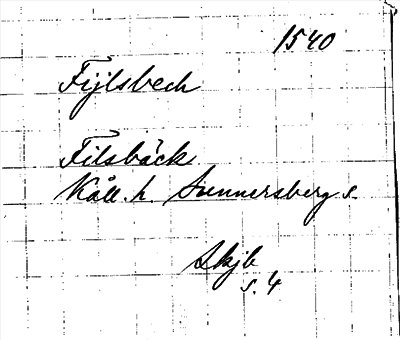 1540
Fijlsbech
Filsbäck
Kåll. h. Sunnersberg s.
Skjb
s. 4